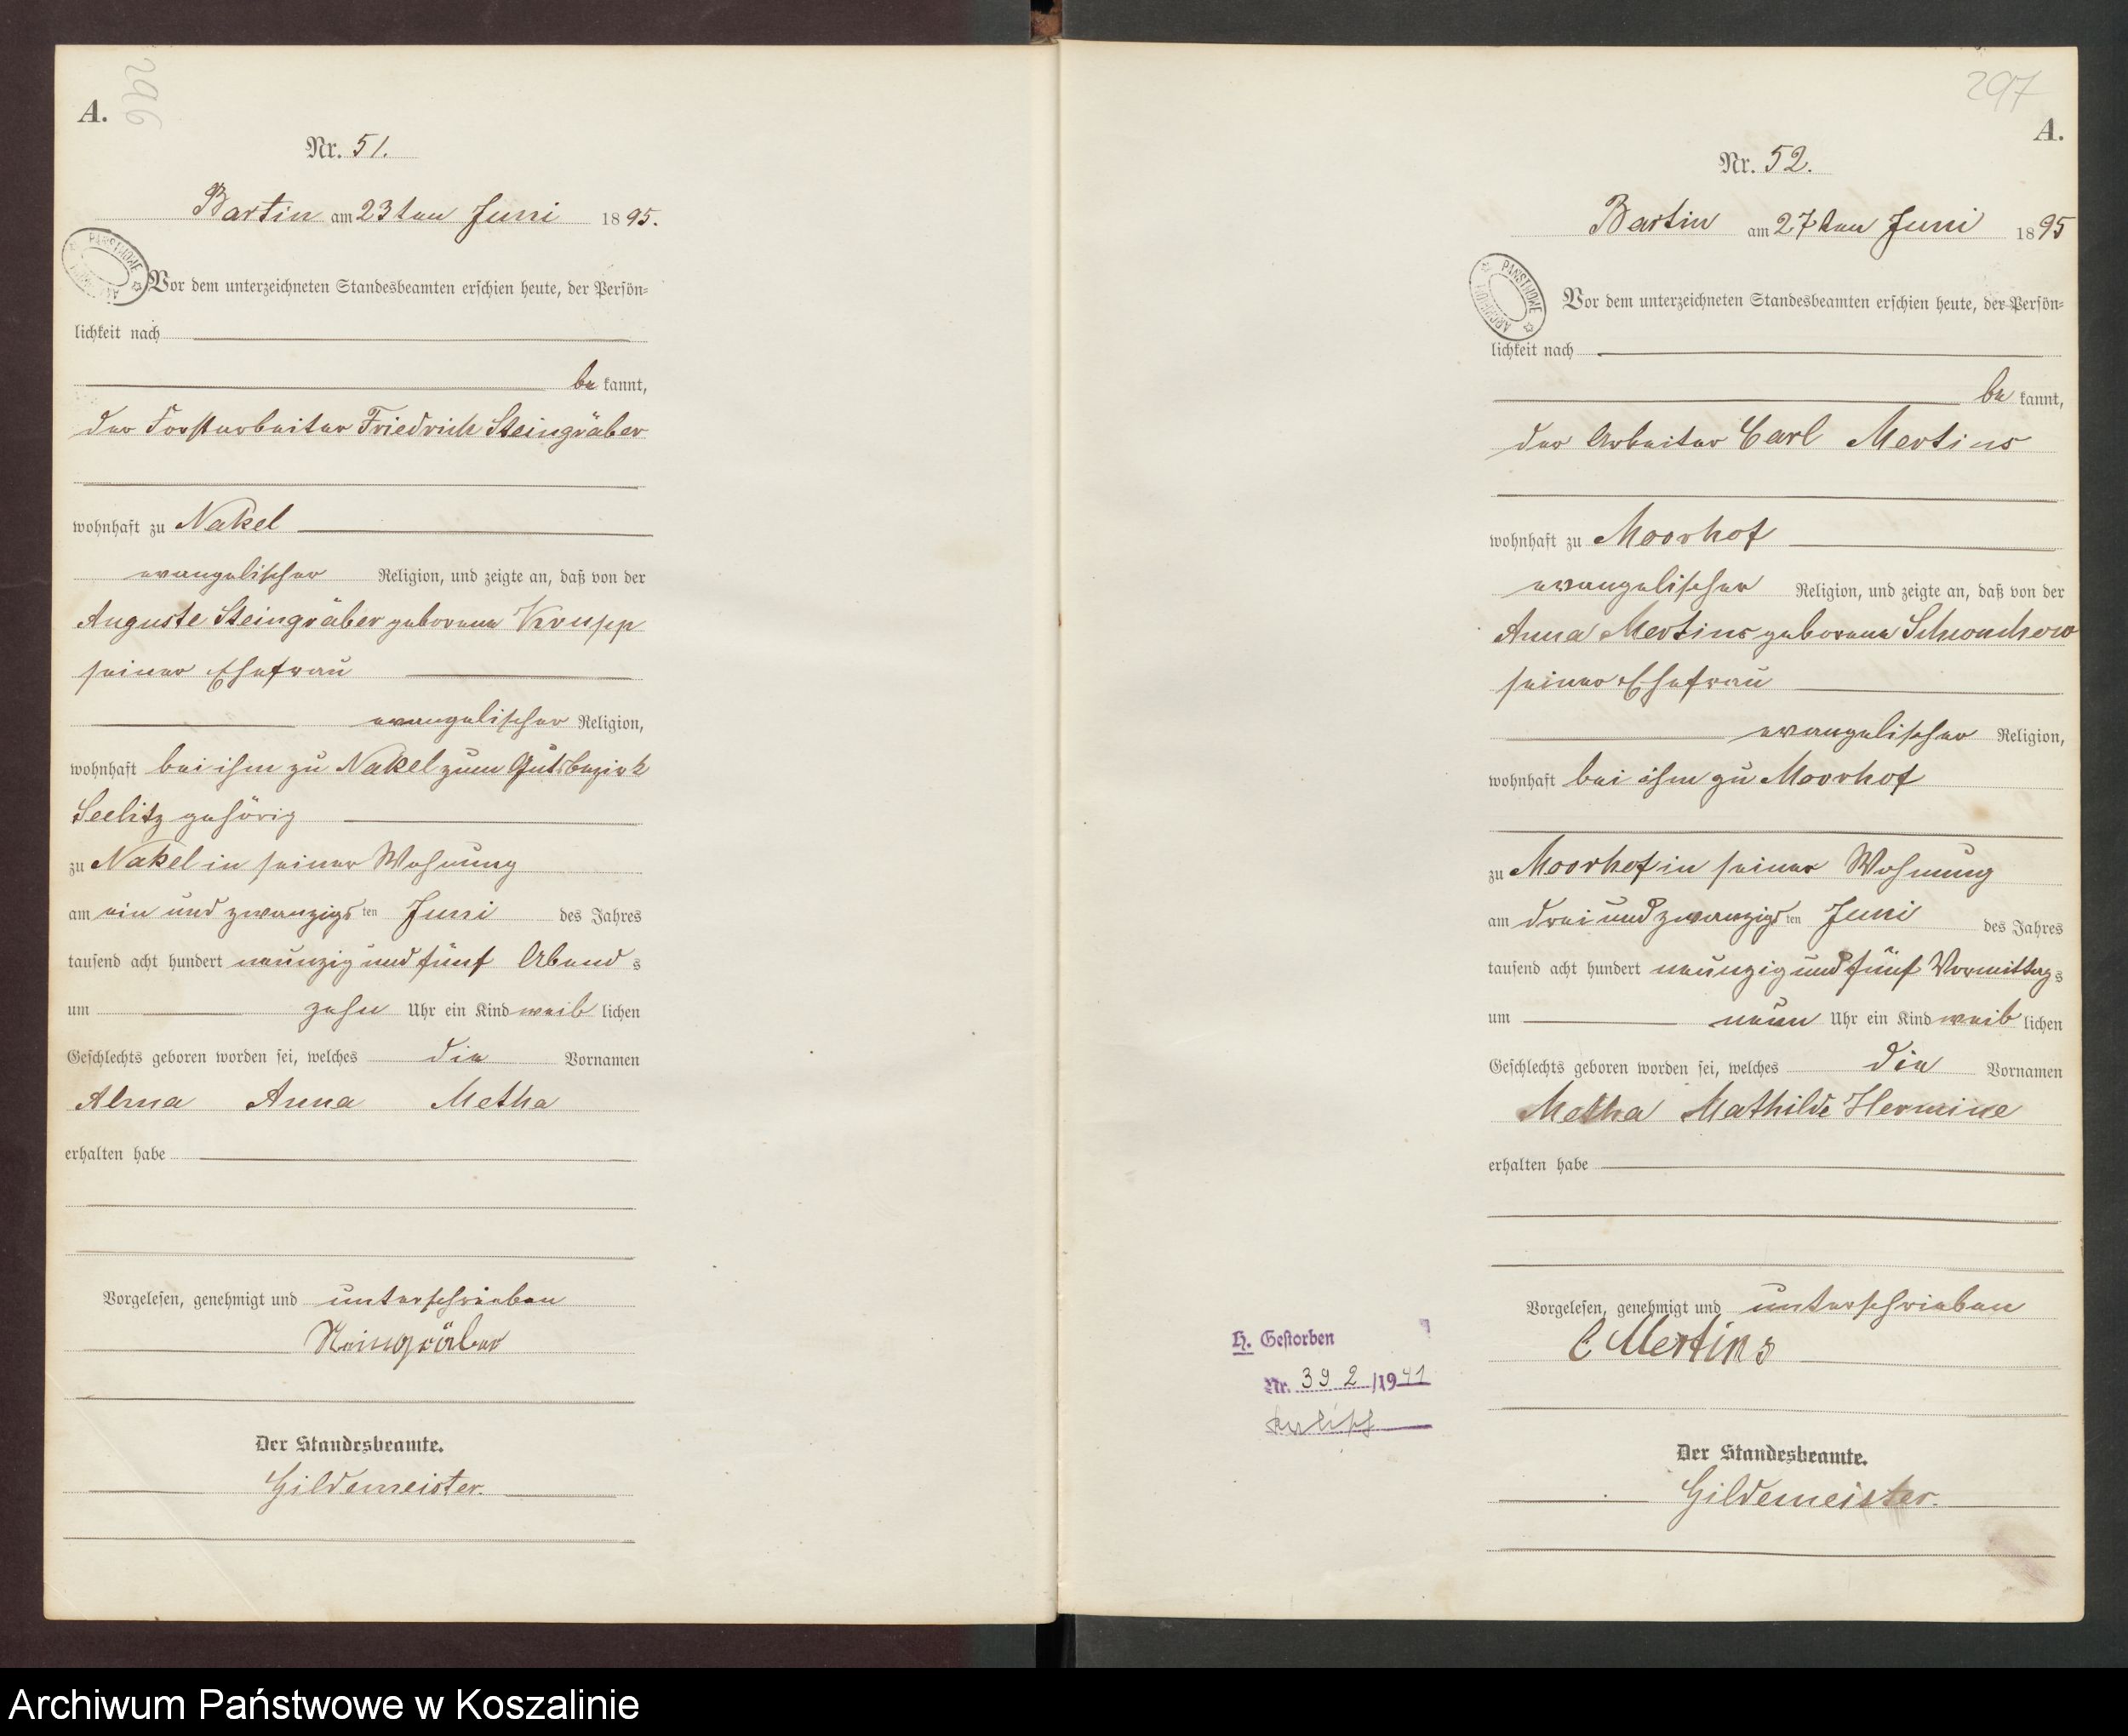 296
A.
Nr. 51.
Bartin am 23ten Juni 1895.
Vor dem unterzeichneten Standesbeamten erschien heute, der Persön-
lichkeit nach
be kannt,
der Forstarbeiter Friedrich Steingräber
wohnhaft zu Nakel
evangelischer Religion, und zeigte an, daß von der
Auguste Steingräber geborene Krupp
seiner Ehefrau
evangelischer Religion,
wohnhaft bei ihm zu Nakel zum Gutsbezirk
Seelitz gehörig
zu Nakel in seiner Wohnung
am ein und zwanzigsten Juni des Jahres
tausend acht hundert neunzig und fünf Abends
um zehn Uhr ein Kind weiblichen
Geschlechts geboren worden sei, welches die Vornamen
Alma Anna Metha
erhalten habe
Vorgelesen, genehmigt und unterschrieben
Steingräber
Der Standesbeamte.
Gildemeister.
297
A.
Nr. 52.
Bartin am 27ten Juni 1895
PAŃSTWOWE ARCHIWUM
Vor dem unterzeichneten Standesbeamten erschien heute, der Persön-
lichkeit nach
be kannt,
der Arbeiter Carl Mertins
wohnhaft zu Moorhof
evangelischer Religion, und zeigte an, daß von der
Anna Mertins geborene
seiner Ehefrau
evangelischer Religion,
wohnhaft bei ihm zu Moorhof
zu Moorhof in seiner Wohnung
am drei und zwanzigsten Juni des Jahres
tausend acht hundert neunzig und fünf Vormittags
um neun Uhr ein Kind weiblichen
Geschlechts geboren worden sei, welches die Vornamen
Metha Mathilde Hermine
erhalten habe
Vorgelesen, genehmigt und unterschrieben
C Mertins
Der Standesbeamte.
Gildemeister.
H. Gestorben
Nr. 392/1941
Archiwum Państwowe w Koszalinie